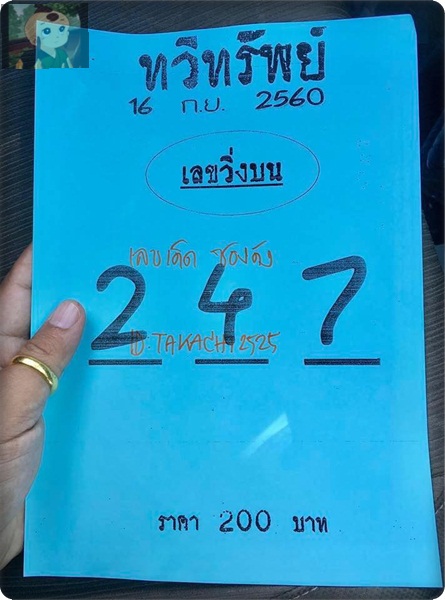 ทวีทรัพย์
16 ก.ย. 2560
เลขวิ่งบน
เลขเด็ด ซองดัง
2 4 7
ID:TAKACHI2525
ราคา 200 บาท